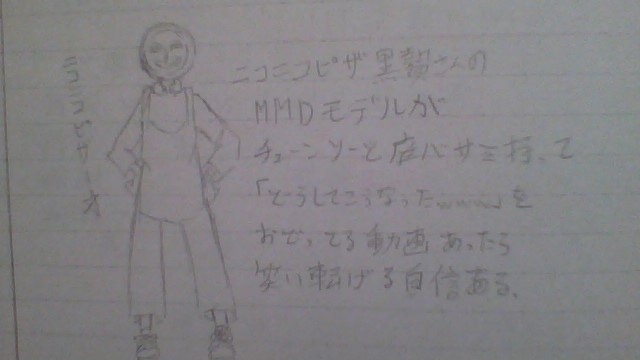 ニコニコピザ
ニコニコピザ黒さんの
MMDモデルが
チェーンソーとバサミ持って
「どうしてこうなったwwww」を
おどってる動画あったら
笑い転げる自信ある。